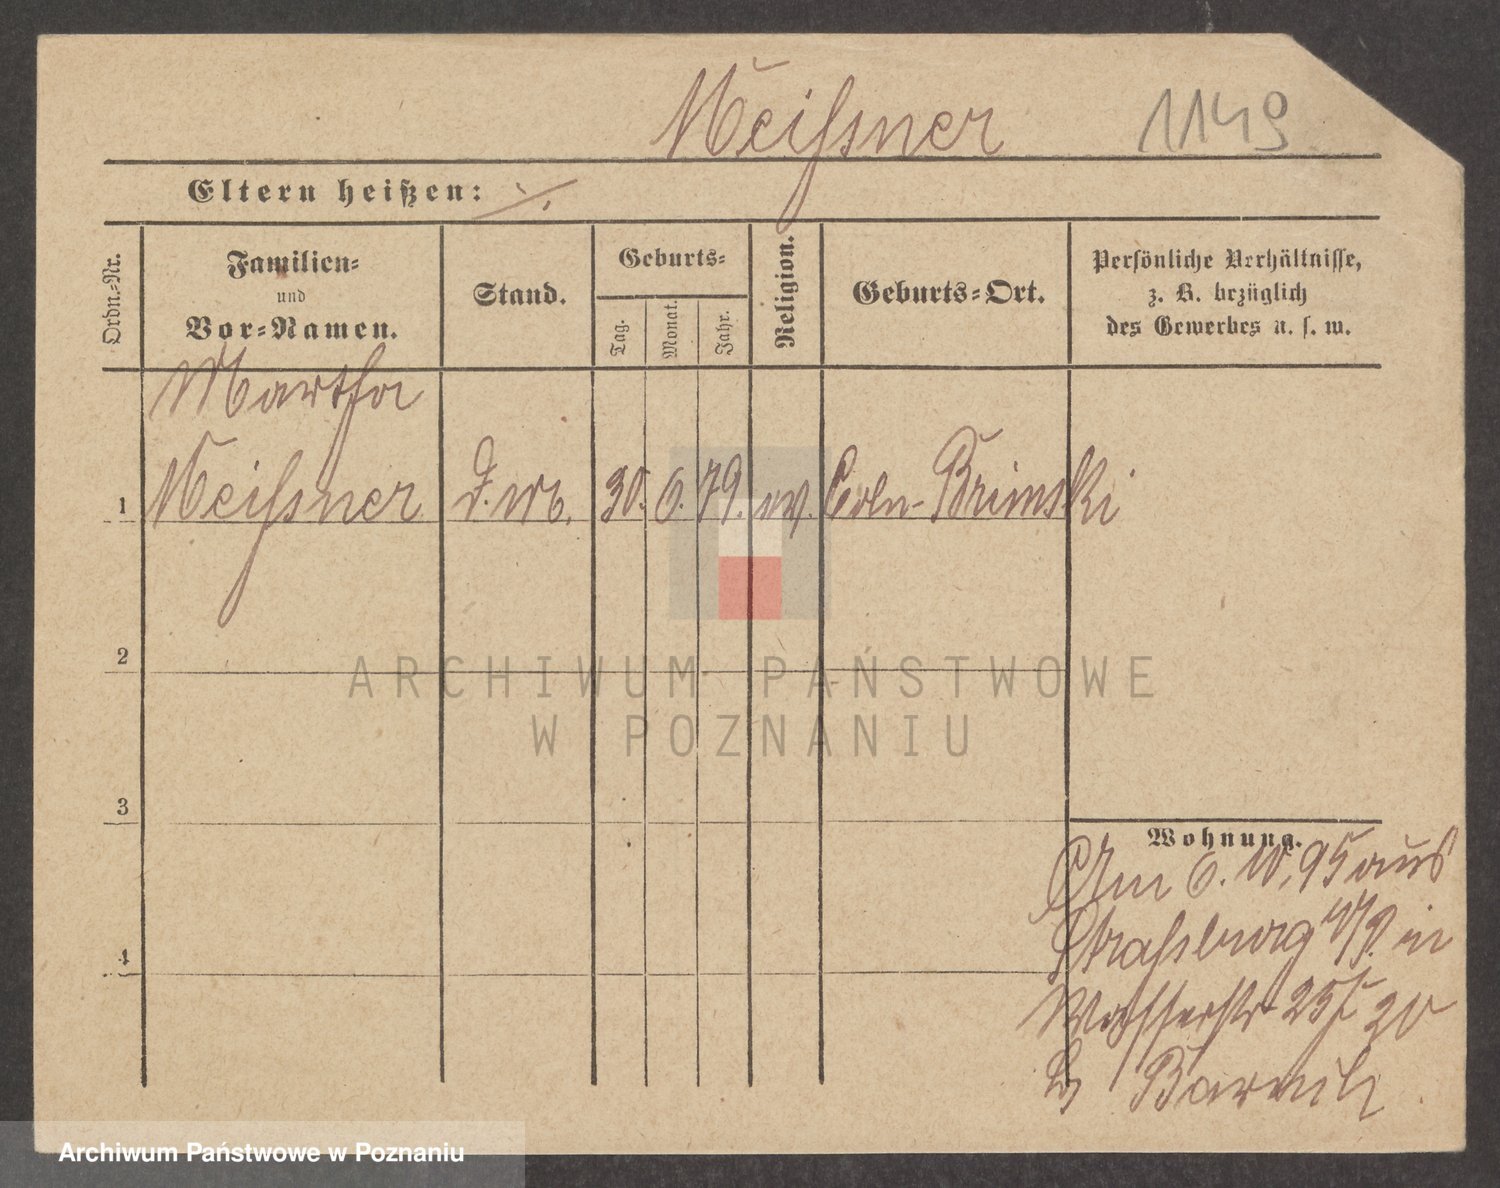 Meißner 1149
Eltern heißen: ./.
Ordn.-Nr.
Familien-
und
Vor-Namen.
Stand.
Geburts-
Tag.
Monat.
Jahr.
Religion.
Geburts-Ort.
Persönliche Verhältnisse,
z. B. bezüglich
des Gewerbes u. s. w.
Martha
1 Meißner 30. 6. 79. ev. Coln-Brinski
2
3
4
Wohnung.
Am 6. 10. 95 aus
Strassburg in
Wasserstr 25
ARCHIWUM PAŃSTWOWE
W POZNANIU
Archiwum Państwowe w Poznaniu